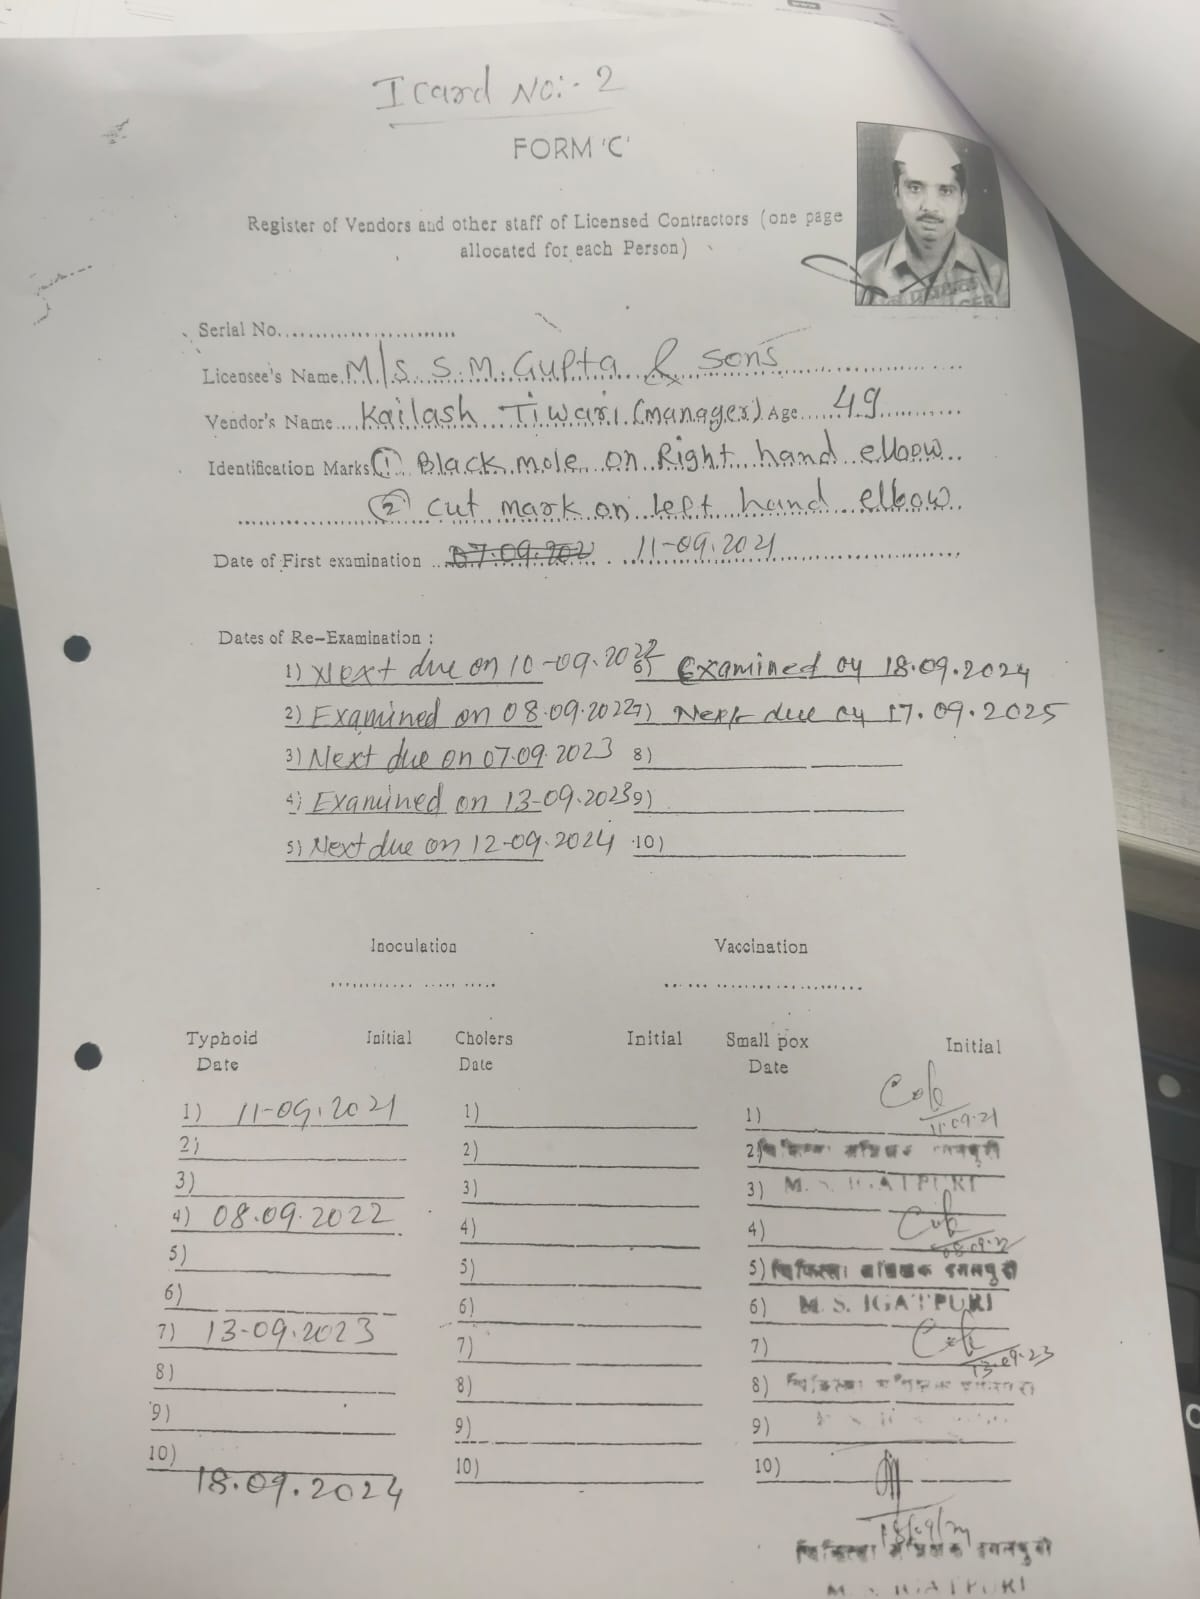 I card No:- 2
FORM 'C'
Register of Vendors and other staff of Licensed Contractors (one page
allocated for each Person)
Serial No.
Licensee's Name M/S. S.M. Gupta & Sons
Vendor's Name Kailash Tiwari (manager) Age 49
Identification Marks ① Black mole on Right hand elbow
② cut mark on left hand elbow
Date of First examination 07.09.202 11-09.2021
Dates of Re-Examination :
1) Next due on 10-09.2022 6) Examined oy 18.09.2024
2) Examined on 08.09.2022 7) Next due oy 17.09.2025
3) Next due on 07.09.2023 8)
4) Examined on 13-09.2023 9)
5) Next due on 12-09.2024 10)
Inoculation Vaccination
Typhoid Initial Cholers Initial Small pox Initial
Date Date Date
1) 11-09.2021 1) 1) 11.09.21
2) 2) 2) चिकित्सा अधीक्षक इगतपुरी
3) 3) 3) M.S. IGATPURI
4) 08.09.2022 4) 4) 08.09.22
5) 5) 5) चिकित्सा अधीक्षक इगतपुरी
6) 6) 6) M.S. IGATPURI
7) 13-09.2023 7) 7) 13.09.23
8) 8) 8) चिकित्सा अधीक्षक इगतपुरी
9) 9) 9)
10) 10) 10)
18.09.2024
चिकित्सा अधीक्षक इगतपुरी
M.S. IGATPURI